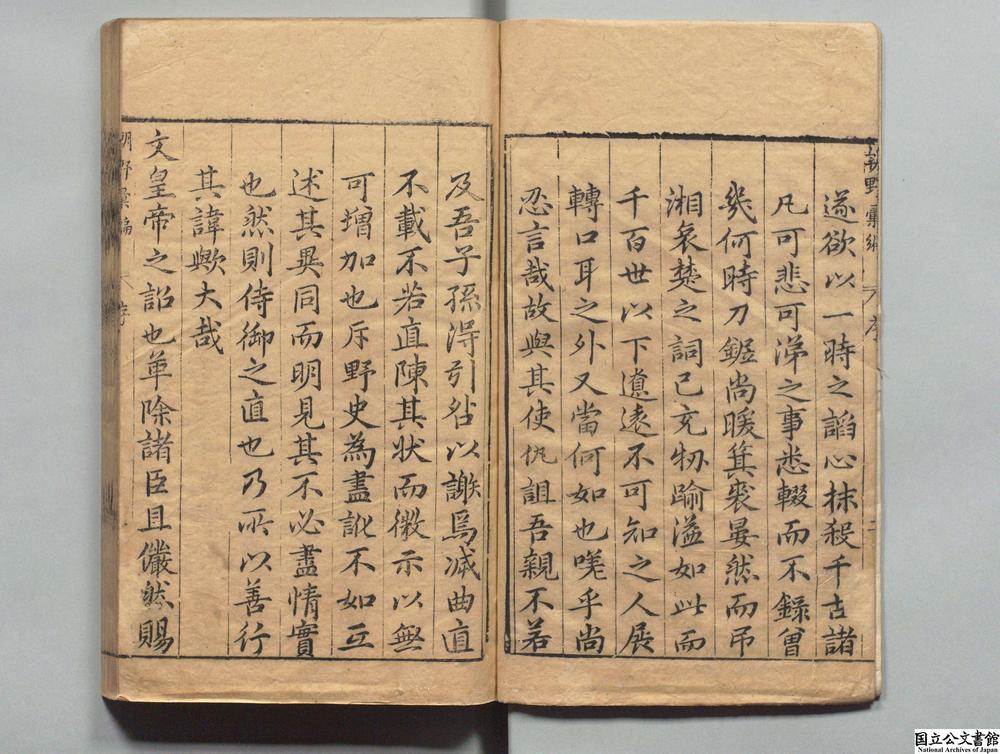 朝野彙編 序
遂欲以一時之諂心抹殺千古諸
凡可悲可涕之事悉輟而不錄曾
幾何時刀鋸尚暖箕裘晏然而吊
湘哀楚之詞已充牣踰溢如此而
千百世以下遼遠不可知之人展
轉口耳之外又當何如也嘆乎尚
忍言哉故與其使仇詛吾親不若
及吾子孫得引咎以謝焉減曲直
不載不若直陳其状而徵示以無
可增加也斥野史為盡訛不如互
述其異同而明見其不必盡情實
也然則侍御之直也乃所以善行
其諱歟大哉
文皇帝之詔也革除諸臣且儼然賜
朝野彙編 序
国立公文書館
National Archives of Japan